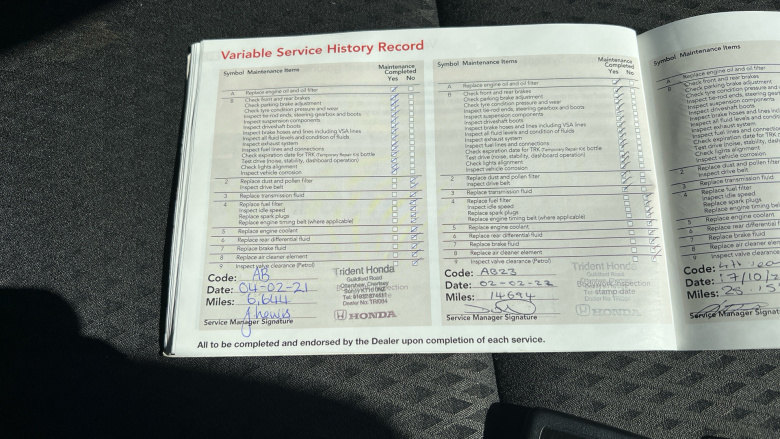 Variable Service History Record
Symbol Maintenance Items
Maintenance
Completed
Yes No
A Replace engine oil and oil filter
B Check front and rear brakes
Check parking brake adjustment
Check tyre condition pressure and wear
Inspect tie-rod ends, steering gearbox and boots
Inspect suspension components
Inspect driveshaft boots
Inspect brake hoses and lines including VSA lines
Inspect all fluid levels and condition of fluids
Inspect exhaust system
Inspect fuel lines and connections
Check expiration date for TRK (Temporary Repair Kit) bottle
Test drive (noise, stability, dashboard operation)
Check lights alignment
Inspect vehicle corrosion
2 Replace dust and pollen filter
Inspect drive belt
3 Replace transmission fluid
4 Replace fuel filter
Inspect idle speed
Replace spark plugs
Replace engine timing belt (where applicable)
5 Replace engine coolant
6 Replace rear differential fluid
7 Replace brake fluid
8 Replace air cleaner element
9 Inspect valve clearance (Petrol)
Code: AB
Date: 04-02-21
Miles: 6,644
Service Manager Signature
Trident Honda
Guildford Road
Ottershaw, Chertsey
HONDA
Symbol Maintenance Items
Maintenance
Completed
Yes No
A Replace engine oil and oil filter
B Check front and rear brakes
Check parking brake adjustment
Check tyre condition pressure and wear
Inspect tie-rod ends, steering gearbox and boots
Inspect suspension components
Inspect driveshaft boots
Inspect brake hoses and lines including VSA lines
Inspect all fluid levels and condition of fluids
Inspect exhaust system
Inspect fuel lines and connections
Check expiration date for TRK (Temporary Repair Kit) bottle
Test drive (noise, stability, dashboard operation)
Check lights alignment
Inspect vehicle corrosion
2 Replace dust and pollen filter
Inspect drive belt
3 Replace transmission fluid
4 Replace fuel filter
Inspect idle speed
Replace spark plugs
Replace engine timing belt (where applicable)
5 Replace engine coolant
6 Replace rear differential fluid
7 Replace brake fluid
8 Replace air cleaner element
9 Inspect valve clearance (Petrol)
Code: AB23
Date: 02-02-22
Miles: 14694
Service Manager Signature
Trident Honda
Bodywork Inspection
HONDA
Symbol Maintenance Items
A Replace engine oil and oil filter
B Check front and rear brakes
Check parking brake adjustment
Check tyre condition pressure and
Inspect tie-rod ends, steering gear
Inspect suspension components
Inspect driveshaft boots
Inspect brake hoses and lines inc
Inspect all fluid levels and condit
Inspect exhaust system
Inspect fuel lines and connections
Check expiration date for TRK
Test drive (noise, stability, dash
Check lights alignment
Inspect vehicle corrosion
2 Replace dust and pollen filter
Inspect drive belt
3 Replace transmission fluid
4 Replace fuel filter
Inspect idle speed
Replace spark plugs
Replace engine timing be
5 Replace engine coolant
6 Replace rear differential
7 Replace brake fluid
8 Replace air cleaner elem
9 Inspect valve clearance
Code:
Date:
Miles:
Service Manager Signat
All to be completed and endorsed by the Dealer upon completion of each service.